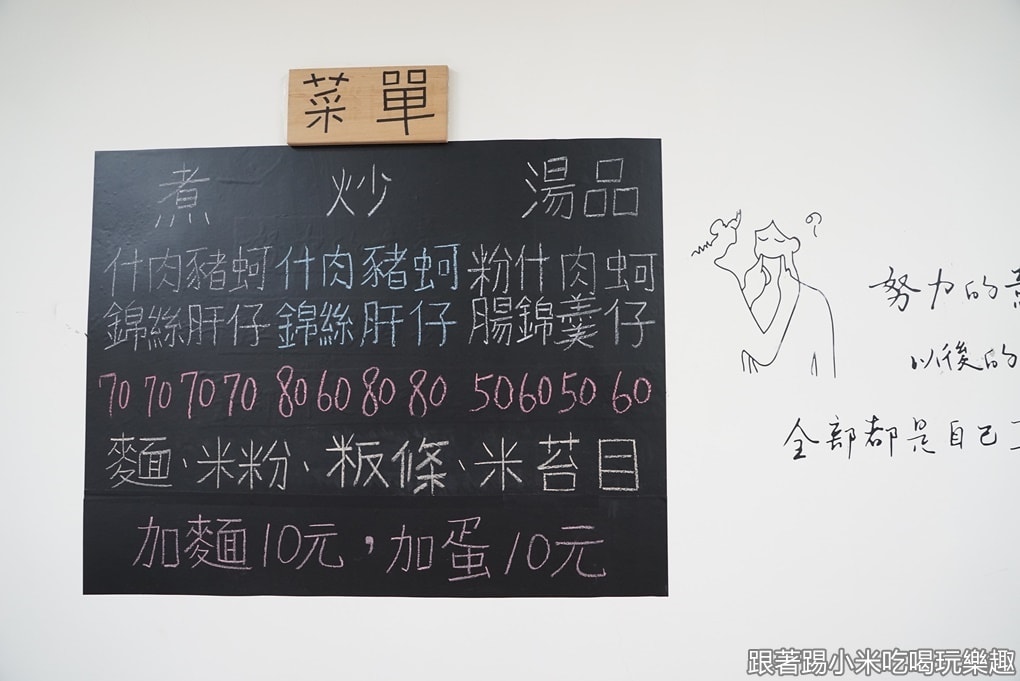 菜單
煮 炒 湯品
什肉豬蚵 什肉豬蚵 粉什肉蚵
錦絲肝仔 錦絲肝仔 腸錦羹仔
70 70 70 70 80 60 80 80 50 60 50 60
麵、米粉、粄條、米苔目
加麵10元，加蛋10元
努力的
以後的
全部都是自己
跟著踢小米吃喝玩樂趣